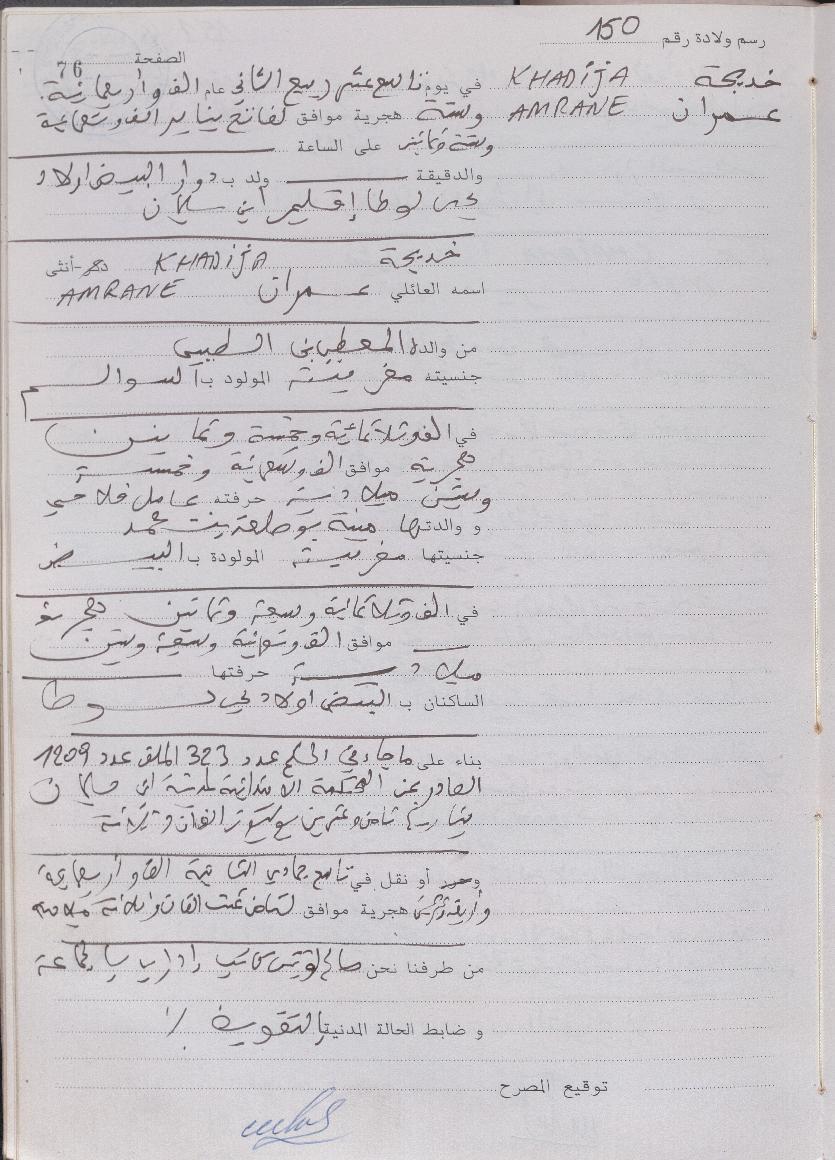 رسم ولادة رقم 150
الصفحة 76
خديجة KHADIJA
عمران AMRANE
في يوم تاسع عشر ربيع الثاني عام الف و أربعمائة
وستة هجرية موافق لفاتح يناير الف وتسعمائة
وستة وثمانين على الساعة
والدقيقة ولد ب دوار البيض اولاد
يحيى لوطا إقليم ابن سليمان
خديجة KHADIJA ذكر-أنثى
اسمه العائلي عمران AMRANE
من والده المعطي بن الطيبي
جنسيته مغربية المولود ب السوالم
في الف وثلاثمائة وخمسة وثمانين
هجرية موافق الف وتسعمائة وخمسة
وستين ميلادية حرفته عامل فلاحي
و والدتها مينة بوطلعة بنت محمد
جنسيتها مغربية المولودة ب البيض
في الف وثلاثمائة وسبعة وثمانين هجرية
موافق الف وتسعمائة وسبعة وستين
ميلادية حرفتها
الساكنان ب البيض اولاد يحيى لوطا
بناء على ماجاء في الحكم عدد 323 الملف عدد 1209
الصادر عن المحكمة الابتدائية بمدينة ابن سليمان
بتاريخ ثامن وعشرين يوليوز الفان وثلاثة
وحرر أو نقل في تاسع جمادى الثانية الف و أربعمائة
وأربعة وعشرين هجرية موافق لثامن غشت الفان وثلاثة ميلادية
من طرفنا نحن صالح لوتيس كاتب إداري بالجماعة
و ضابط الحالة المدنية بالتفويض
توقيع المصرح